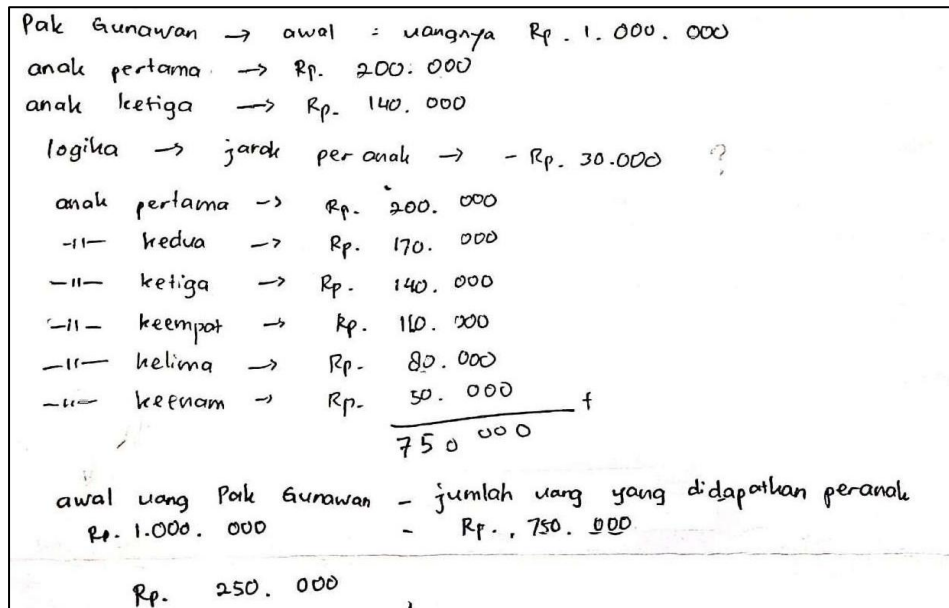 Pak Gunawan → awal : uangnya Rp. 1.000.000
anak pertama → Rp. 200.000
anak ketiga → Rp. 140.000
logika → jarak per anak → - Rp. 30.000 ?
anak pertama -> Rp. 200.000
-11- kedua -> Rp. 170.000
-11- ketiga -> Rp. 140.000
-11- keempat -> Rp. 110.000
-11- kelima -> Rp. 80.000
-11- keenam -> Rp. 50.000 +
750 000
awal uang Pak Gunawan - jumlah uang yang didapatkan peranak
Rp. 1.000.000 - Rp. 750.000
Rp. 250.000